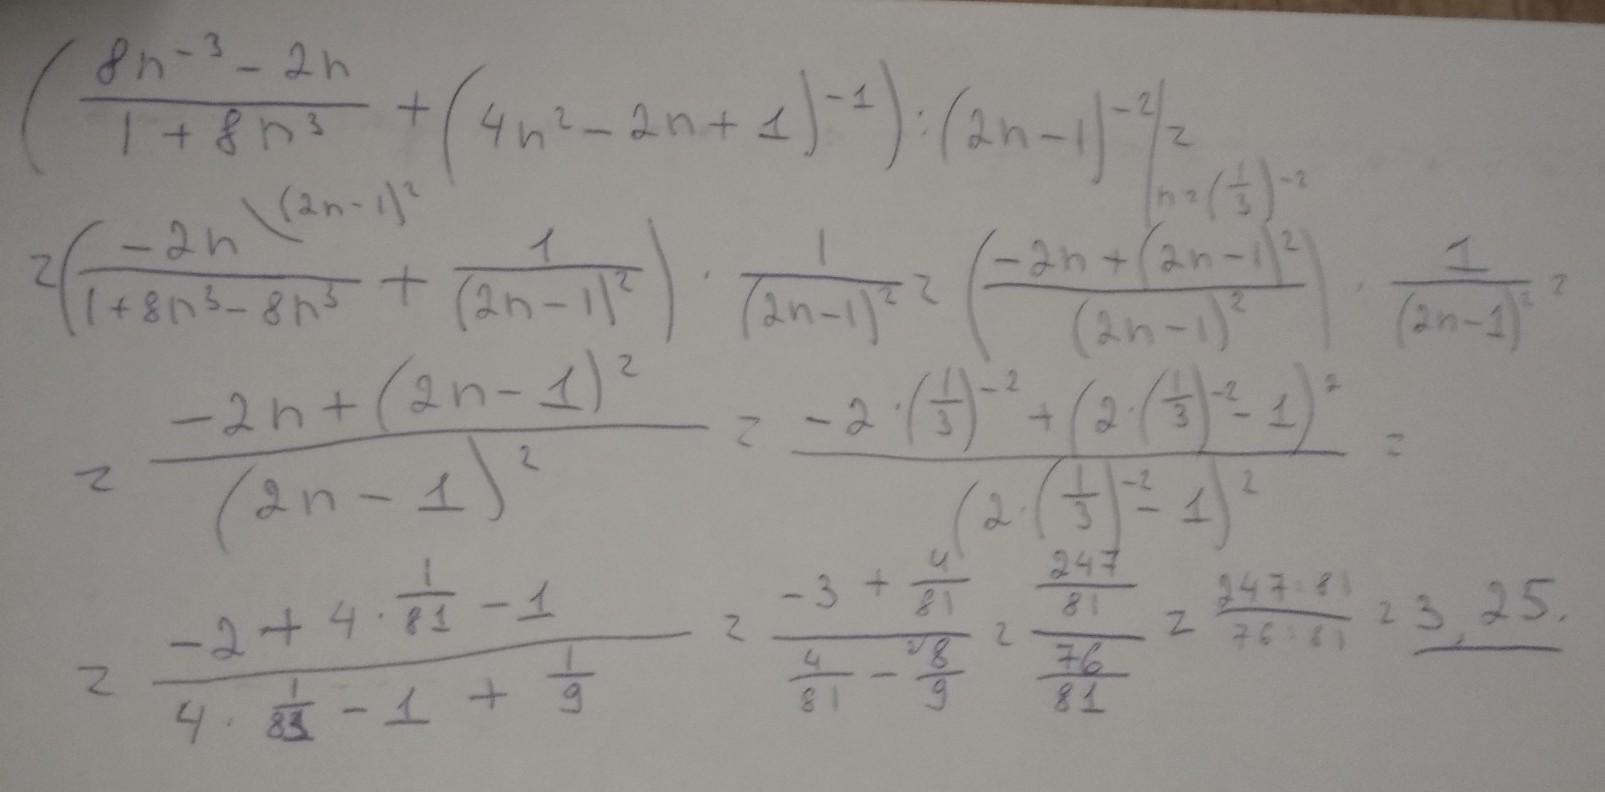 (8n⁻³ - 2n / 1 + 8n³ + (4n² - 2n + 1)⁻¹) : (2n - 1)⁻² | n = (1/3)⁻² =
= (-2n \(2n-1)² / 1 + 8n³ - 8n³ + 1 / (2n-1)²) · 1 / (2n-1)² = (-2n + (2n-1)² / (2n-1)²) · 1 / (2n-1)² =
= -2n + (2n - 1)² / (2n - 1)² = -2 · (1/3)⁻² + (2 · (1/3)⁻² - 1)² / (2 · (1/3)⁻² - 1)² =
= -2 + 4 · 1/81 - 1 / 4 · 1/81 - 1 + 1/9 = -3 + 4/81 / 4/81 - 8/9 = 247/81 / 76/81 = 247 : 81 / 76 : 81 = 3,25.